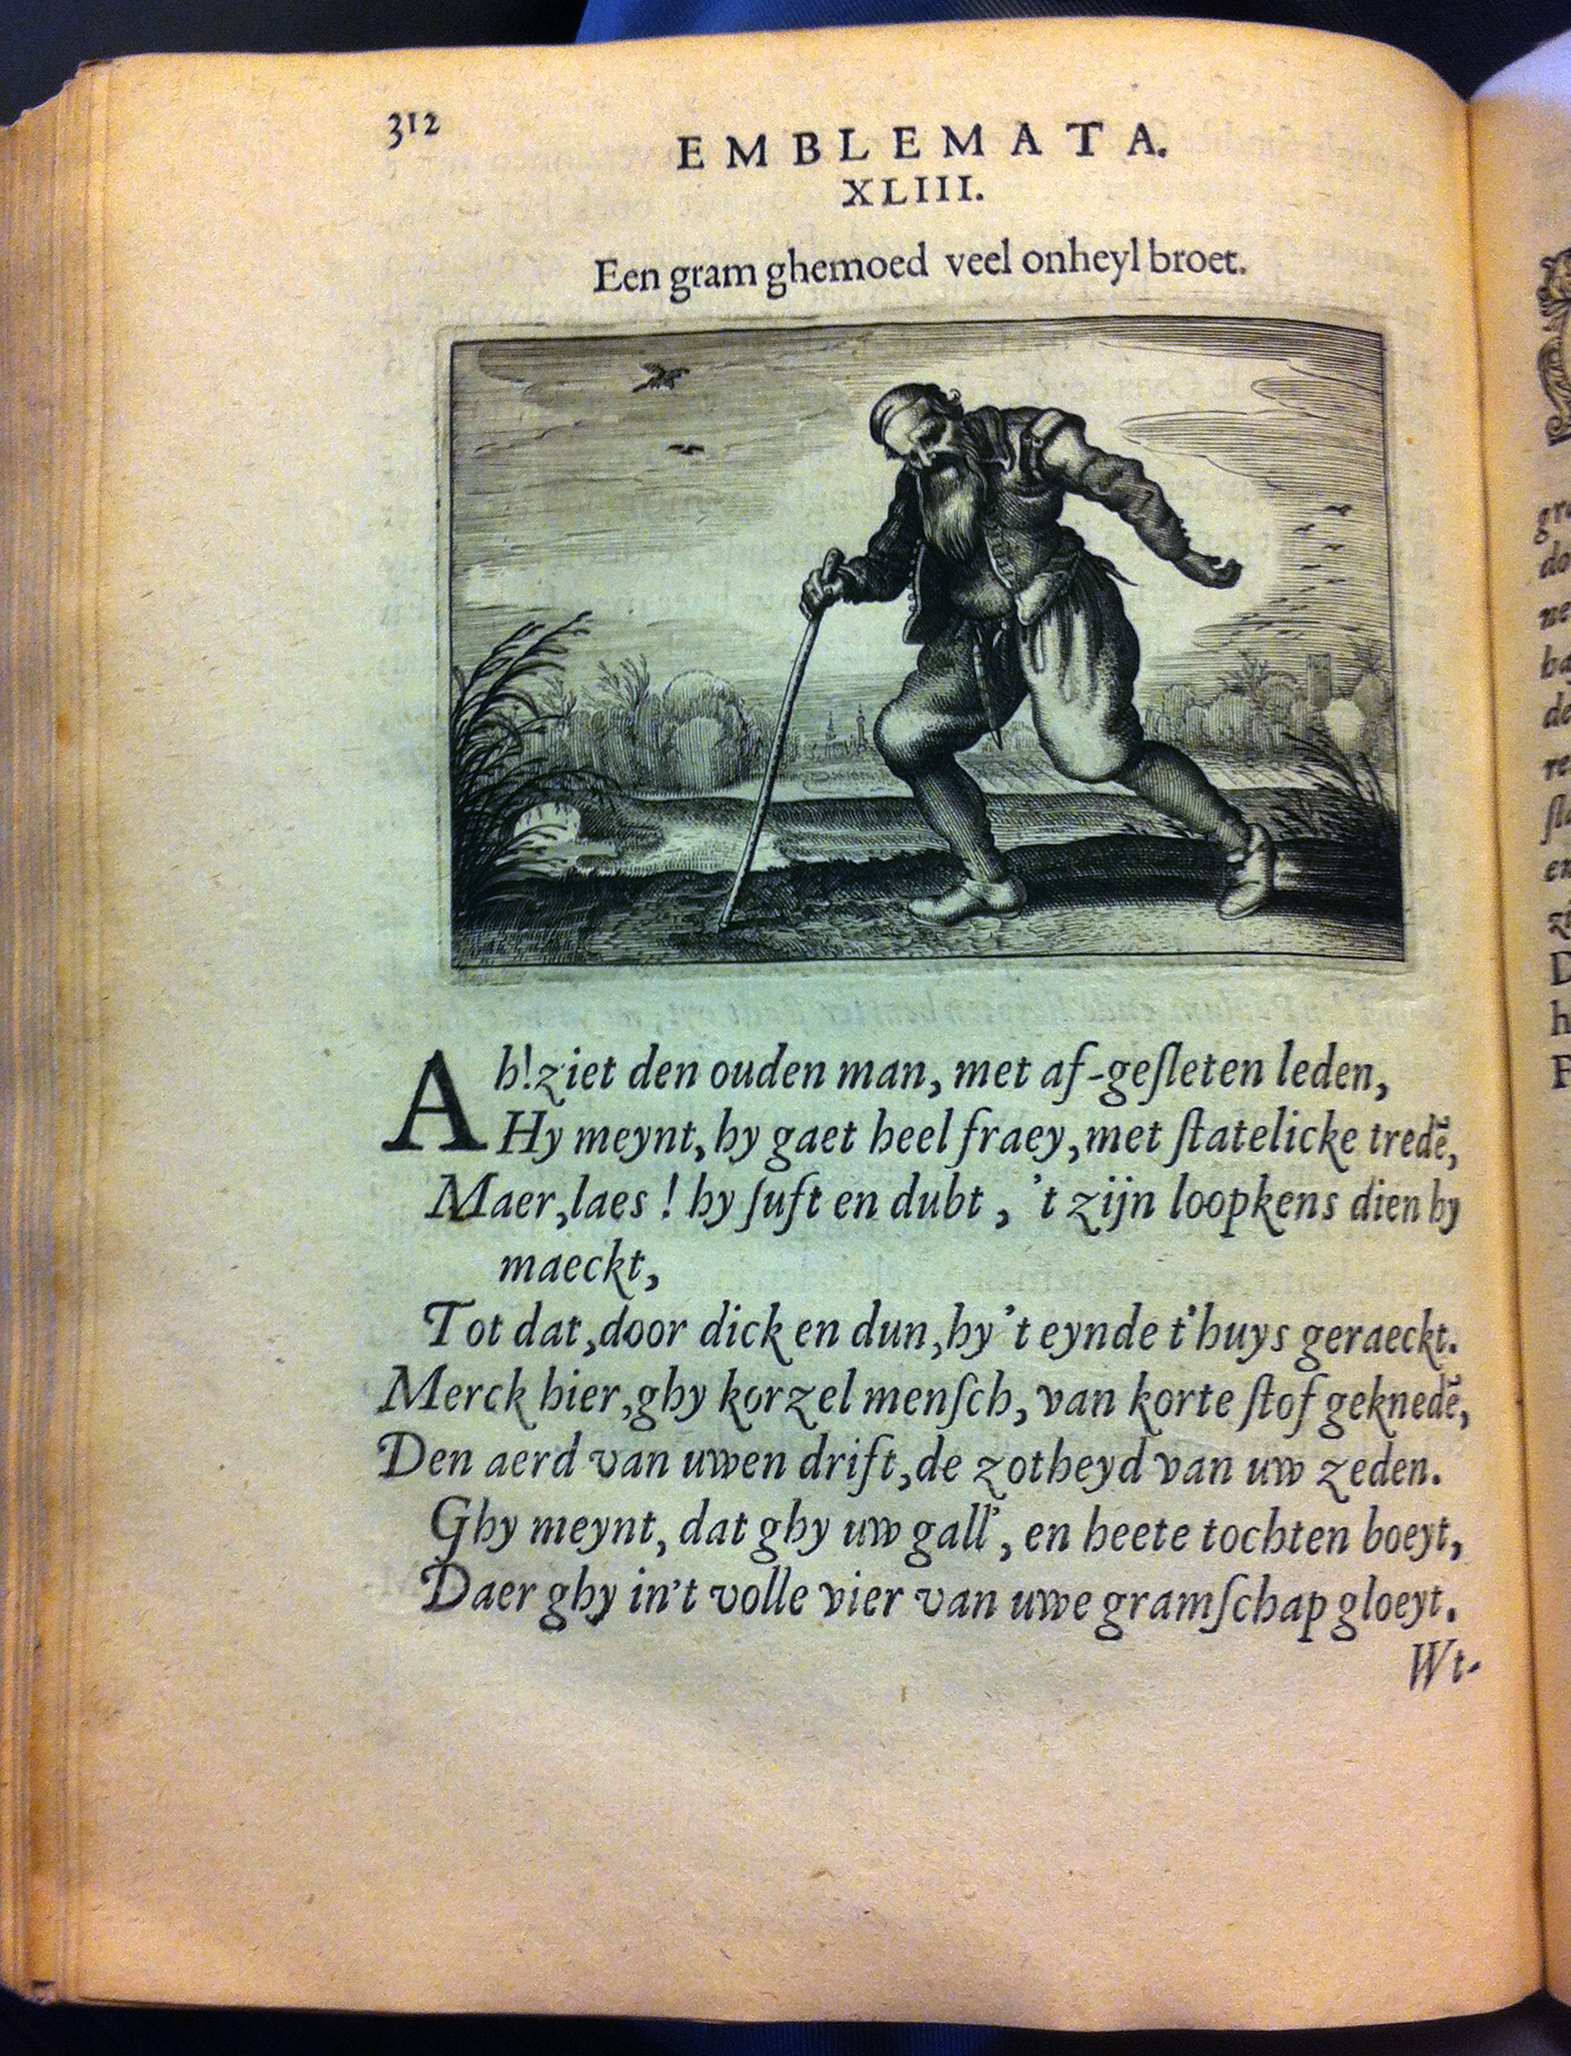 312
EMBLEMATA.
XLIII.
Een gram ghemoed veel onheyl broet.
Ah! ziet den ouden man, met af-geſleten leden,
Hy meynt, hy gaet heel fraey, met ſtatelicke tredē,
Maer, laes ! hy ſuft en dubt, 't zijn loopkens dien hy
maeckt,
Tot dat, door dick en dun, hy 't eynde t'huys geraeckt.
Merck hier, ghy korzel menſch, van korte ſtof geknedē,
Den aerd van uwen drift, de zotheyd van uw zeden.
Ghy meynt, dat ghy uw gall', en heete tochten boeyt,
Daer ghy in't volle vier van uwe gramſchap gloeyt.
Wt-